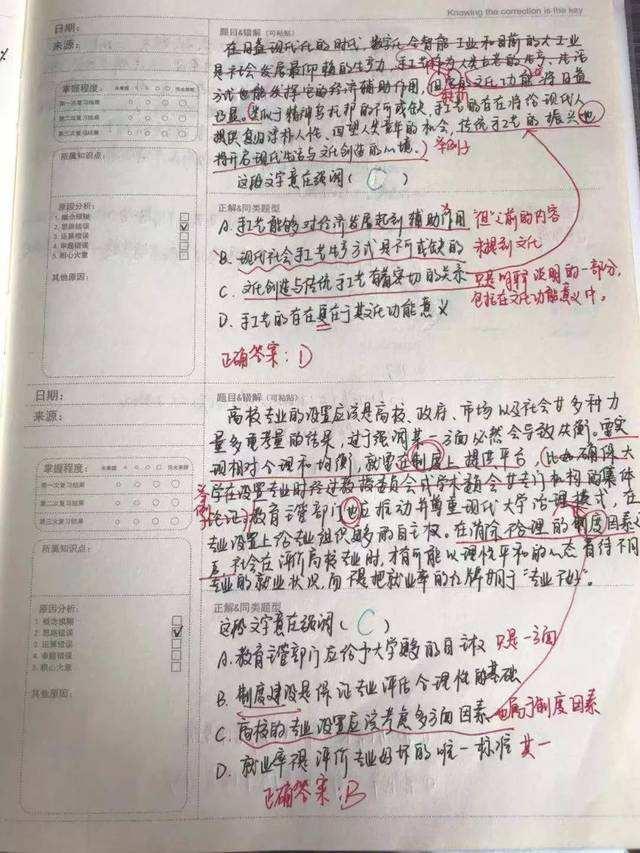 Knowing the correction is the key
日期：
来源：
题目&错解（可粘贴）
在日益现代化的时代，数字化合智能工业和目前的大工业
是社会发展最仰赖的生产力，手工艺作为人类古老的生产、生活
方式也能发挥一定的经济辅助作用，但它的文化功能将日益
凸显。类似于精神乌托邦的不可或缺，手工艺的存在将给现代人
提供复归淳朴人性、回望人类童年的机会，传统手工艺的振兴也
将开启现代生活与文创造的心境。）举例子
这段文字意在强调（ C ）
掌握程度：
未掌握
完全掌握
第一次复习结果
第二次复习结果
第三次复习结果
所属知识点：
原因分析：
1. 概念模糊
2. 思路错误
3. 运算错误
4. 审题错误
5. 粗心大意
其他原因：
正解&同类题型
A. 手工艺能够对经济发展起到辅助作用 但之前的内容
B. 现代社会手工艺生产方式是不可或缺的 未提到文化
C. 文化创造与传统手工艺有着密切的关系 只是解释说明的一部分，
包括在文化功能意义中。
D. 手工艺的存在意在于其文化功能意义
正确答案：D
日期：
来源：
题目&错解（可粘贴）
高校专业的设置应该是高校、政府、市场以及社会等多种力
量多重考量的结果，过于强调某一方面必然会导致失衡。要实
现相对合理和均衡，就需在制度上提供平台，比如确保大
学在设置专业时经过教授委员会或学术委员会等专门机构的集体
论证；教育主管部门也应推动并尊重现代大学治理模式，在
专业设置上给专业组织足够的自主权。在消除不合理的制度因素之
后，社会在评价高校专业时，才有可能以理性平和的心态看待不同
专业的就业状况，而不是把就业率的力牌都归于“专业不好”。
举例
掌握程度：
未掌握
完全掌握
第一次复习结果
第二次复习结果
第三次复习结果
所属知识点：
原因分析：
1. 概念模糊
2. 思路错误
3. 运算错误
4. 审题错误
5. 粗心大意
其他原因：
正解&同类题型
这段文字意在强调（ C ）
A. 教育主管部门应给予大学足够的自主权 只是一方面
B. 制度建设是保证专业评估合理性的基础
C. 高校的专业设置应该考虑多方面因素 也属于制度因素
D. 就业率是评价专业好坏的唯一标准 其一
正确答案：B